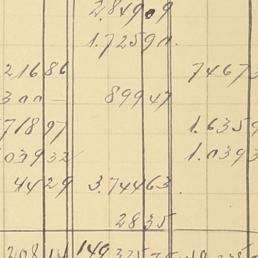 2.84909
1.72590.
21686 74673
300 — 89947
71897 1.6359
03932 1.0393
4429 3.74463.
2835
20814 149